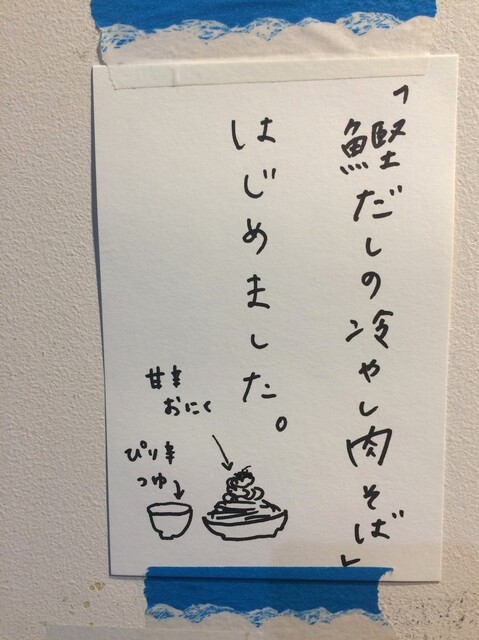 「鰹だしの冷やし肉そば」
はじめました。
甘辛
おにく
ぴり辛
つゆ